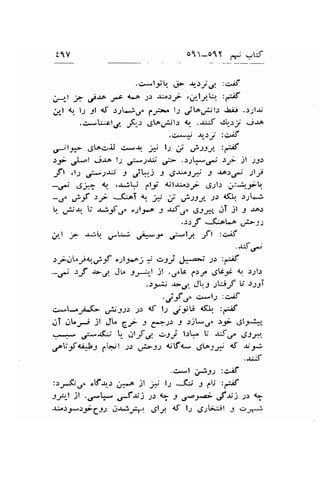 کتاب نهم ۵۹۲–۵۹۱ ۴۹۷
گفت: بی‌تردید حق باتواست.
گفتم: بنابراین، خردمند در همه عمر هدفی جز این
ندارد. فقط دانش‌هائی را محترم می‌شمارد که او را به این
هدف نزدیک کند. به دانش‌های دیگر بی‌اعتناست.
گفت: تردید نیست.
گفتم: پرورش تن را نیز بدست لذت‌های حیوانی
دور از خرد نمی‌سپارد. حتی تندرستی را هدف اصلی خود
قرار نمی‌دهد و نیرومندی و زیبائی و تندرستی را، اگر
باخویشتن داری خردمندانه توام نباشد، به چیزی نمی–
شمارد بلکه در پرورش تن نیز به آهنگ خرد گوش می–
دهد و از آن پیروی می‌کند و همواره می‌کوشد تا بدنش با
روحش هماهنگ گردد.
گفت: اگر براستی موسیقی شناس باشد جز این
نمی‌کند.
گفتم: در تحصیل ثروت نیز همواره گوش‌به‌فرمان‌خرد
دارد نه به غوغای مردم عامی. از اینرو مال بی‌حد گرد نمی–
آورد تا گرفتار وبال بی‌حد نشود.
گفت: راست می‌گوئی.
گفتم: بلکه قانونی را که در درونش حکمفرماست
پیشوای خود می‌سازد و در جمع و خرج مال از فرمان آن
پیروی می‌کند تا مبادا ثروت بی‌کران یا تنگدستی سبب
شوند که نیروهای سه‌گانه روحش در انجام وظیفه‌کوتاهی
کنند.
گفت: روشن است.
گفتم: نام و ننگ را نیز از همین دیدگاه می‌نگرد:
چه در زندگی خصوصی و چه در زندگی سیاسی. از اینرو
شهرت و افتخاری را که برای بهترشدن روح‌خودسودمند